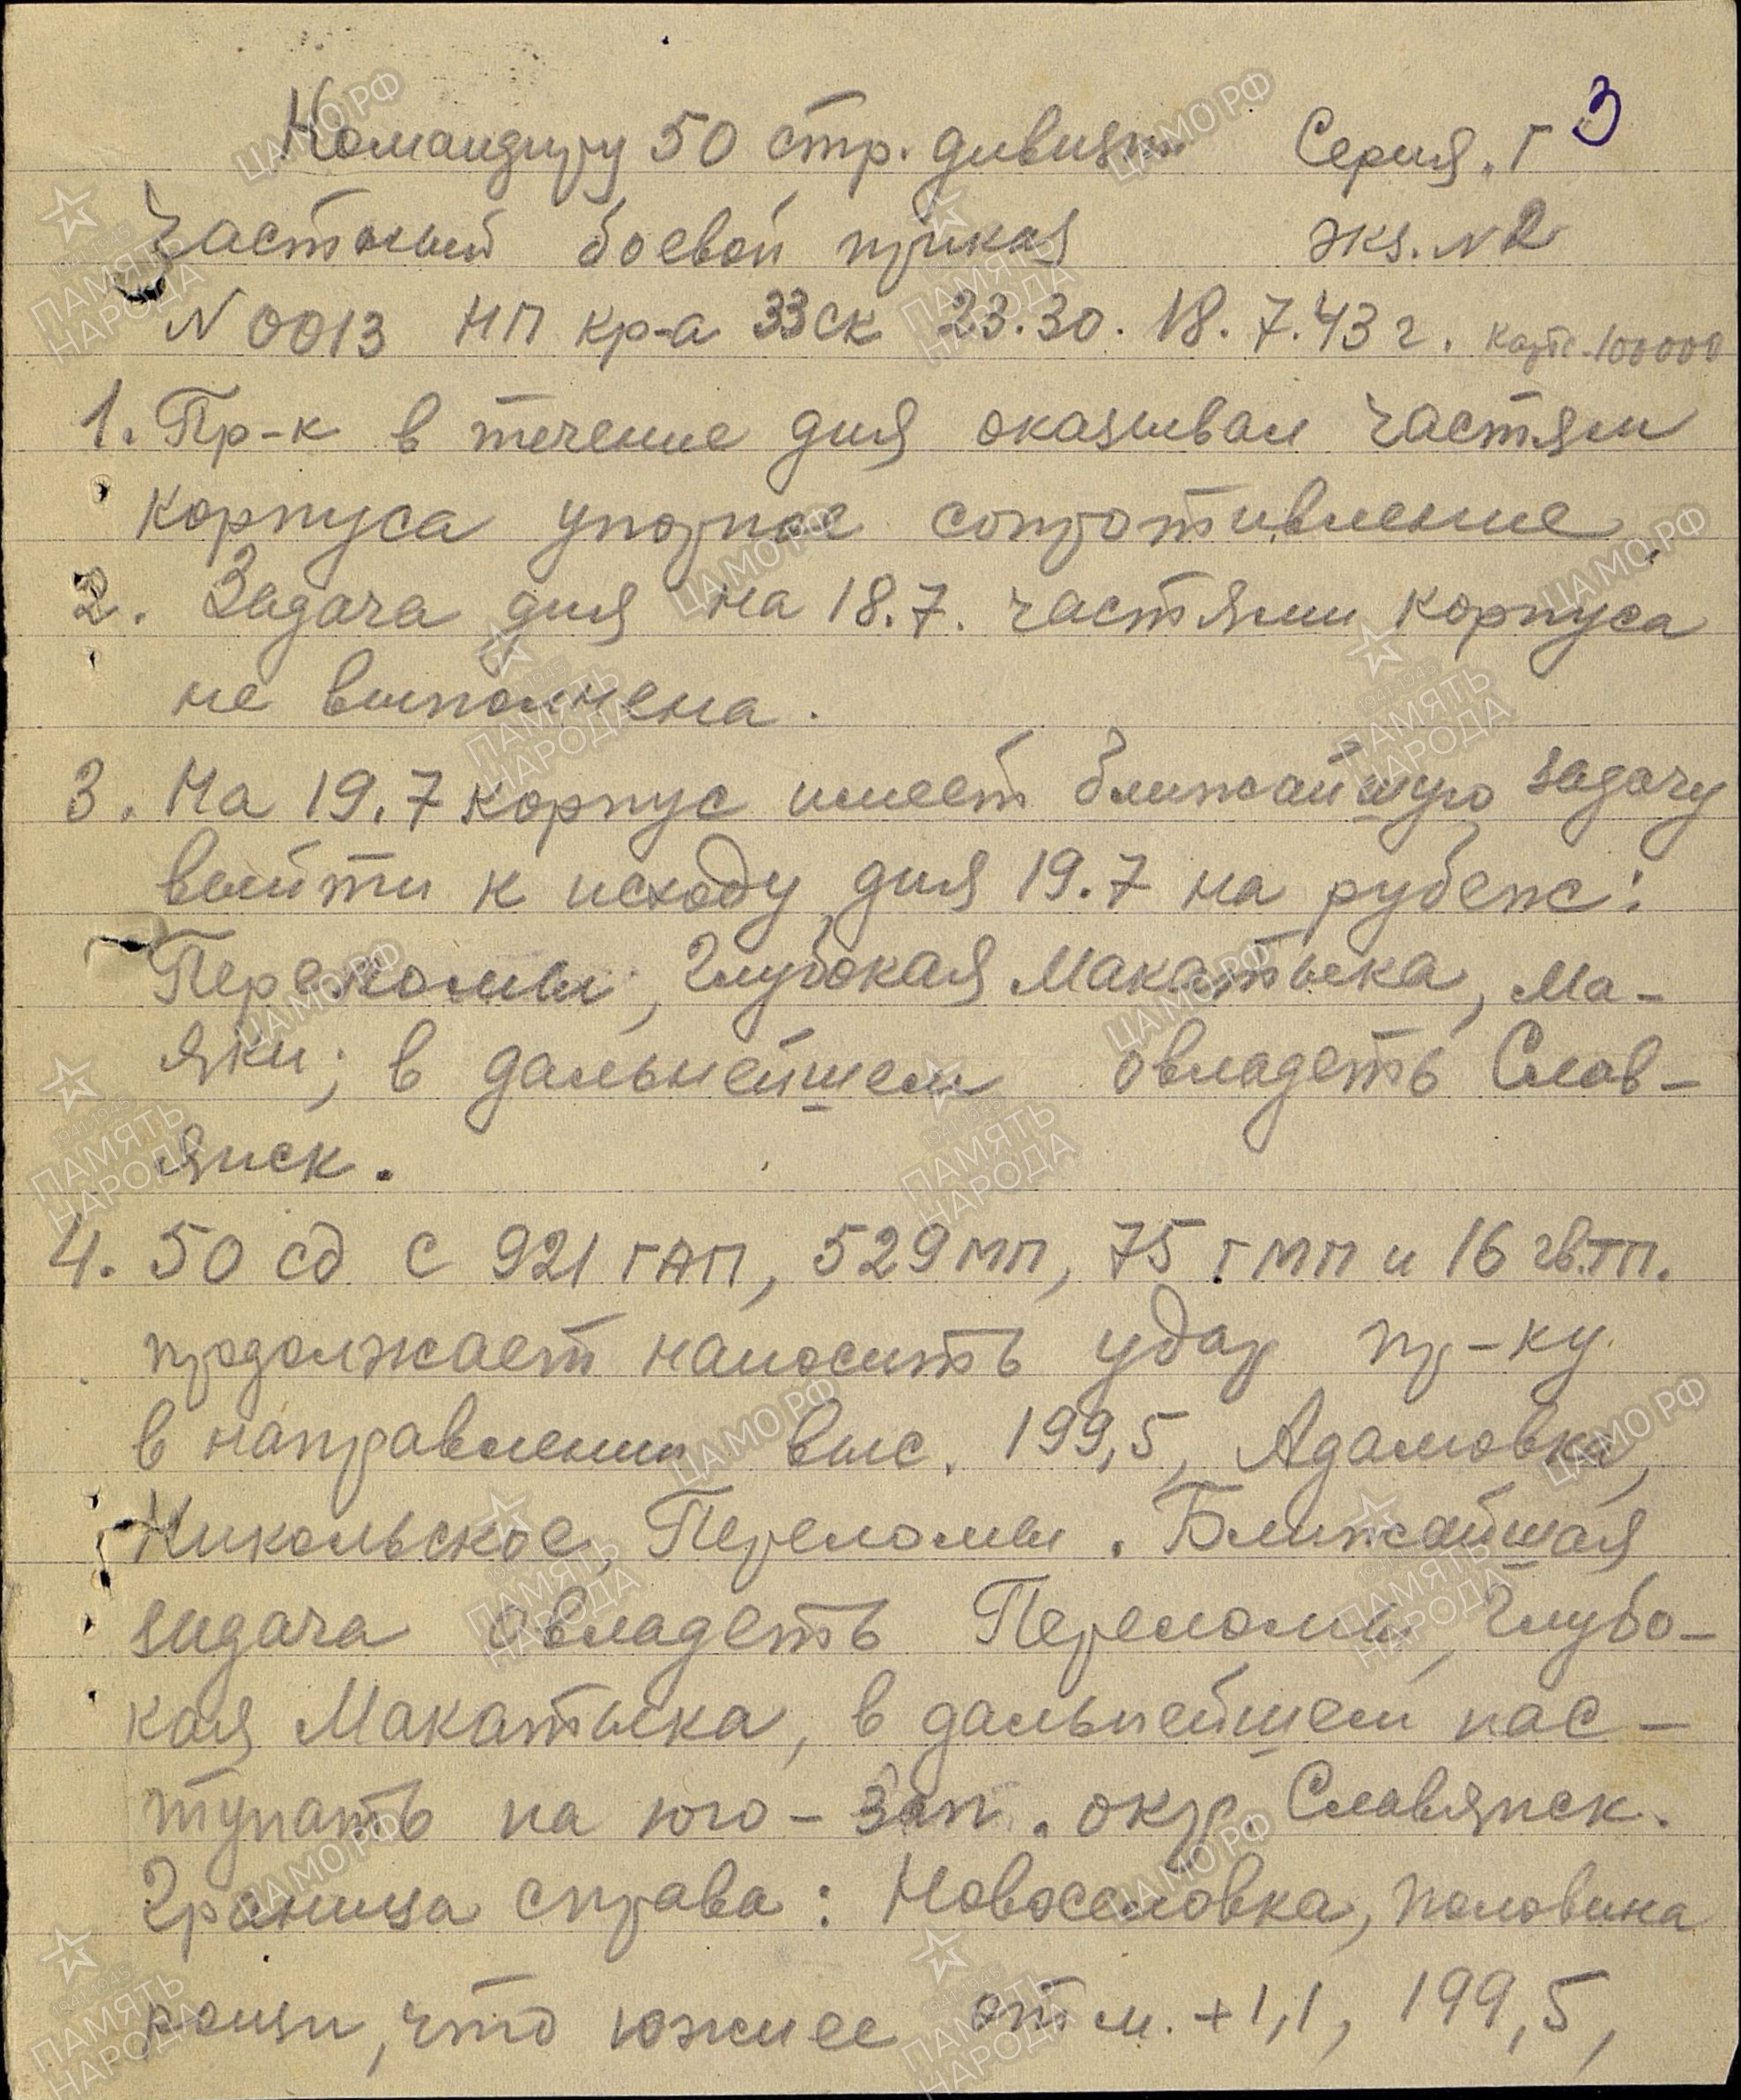 3
Командиру 50 стр. дивизии Серия "Г"
Частный боевой приказ экз. № 2
№ 0013 НП кр-а 33 ск 23.30. 18.7.43 г. карта 100000
1. Пр-к в течение дня оказывал частям
корпуса упорное сопротивление.
2. Задача дня на 18.7. частями корпуса
не выполнена.
3. На 19.7 корпус имеет ближайшую задачу
выйти к исходу дня 19.7 на рубеж:
Переломы, Глубокая Макатыха, Ма-
яки; в дальнейшем овладеть Слав-
янск.
4. 50 сд с 921 гап, 529 мп, 75 гмп и 16 гв.тп.
продолжает наносить удар пр-ку
в направлении выс. 199,5, Адамовка,
Никольское, Переломы. Ближайшая
задача овладеть Переломы, Глубо-
кая Макатыха, в дальнейшем нас-
тупать на юго-зап. окр Славянск.
Граница справа: Новоселовка, половина
рощи, что южнее отм. +1,1, 199,5,
ЦАМО.РФ
ПАМЯТЬ
НАРОДА